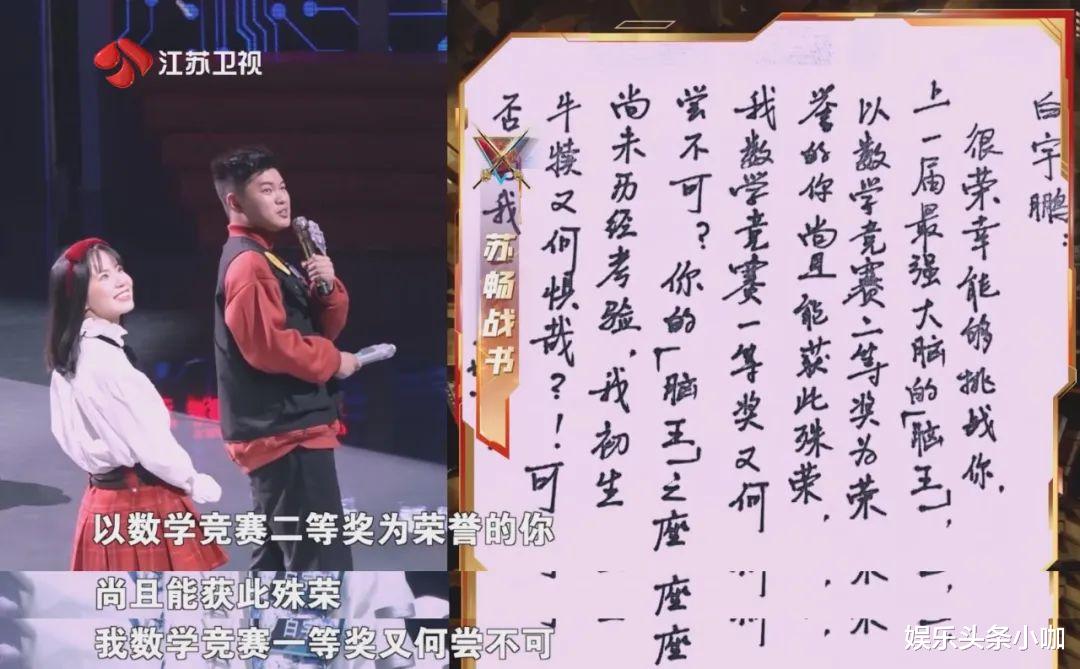 江苏卫视
白宇鹏：
很荣幸能够挑战你，
上一届最强大脑的「脑王」，
以数学竞赛二等奖为荣
誉的你尚且能获此殊荣，
我数学竞赛一等奖又何
尝不可？你的「脑王」之座
尚未历经考验，我初生
牛犊又何惧哉？！可
否
我
苏畅战书
以数学竞赛二等奖为荣誉的你
尚且能获此殊荣
座
我数学竞赛一等奖又何尝不可
座
娱乐头条小咖